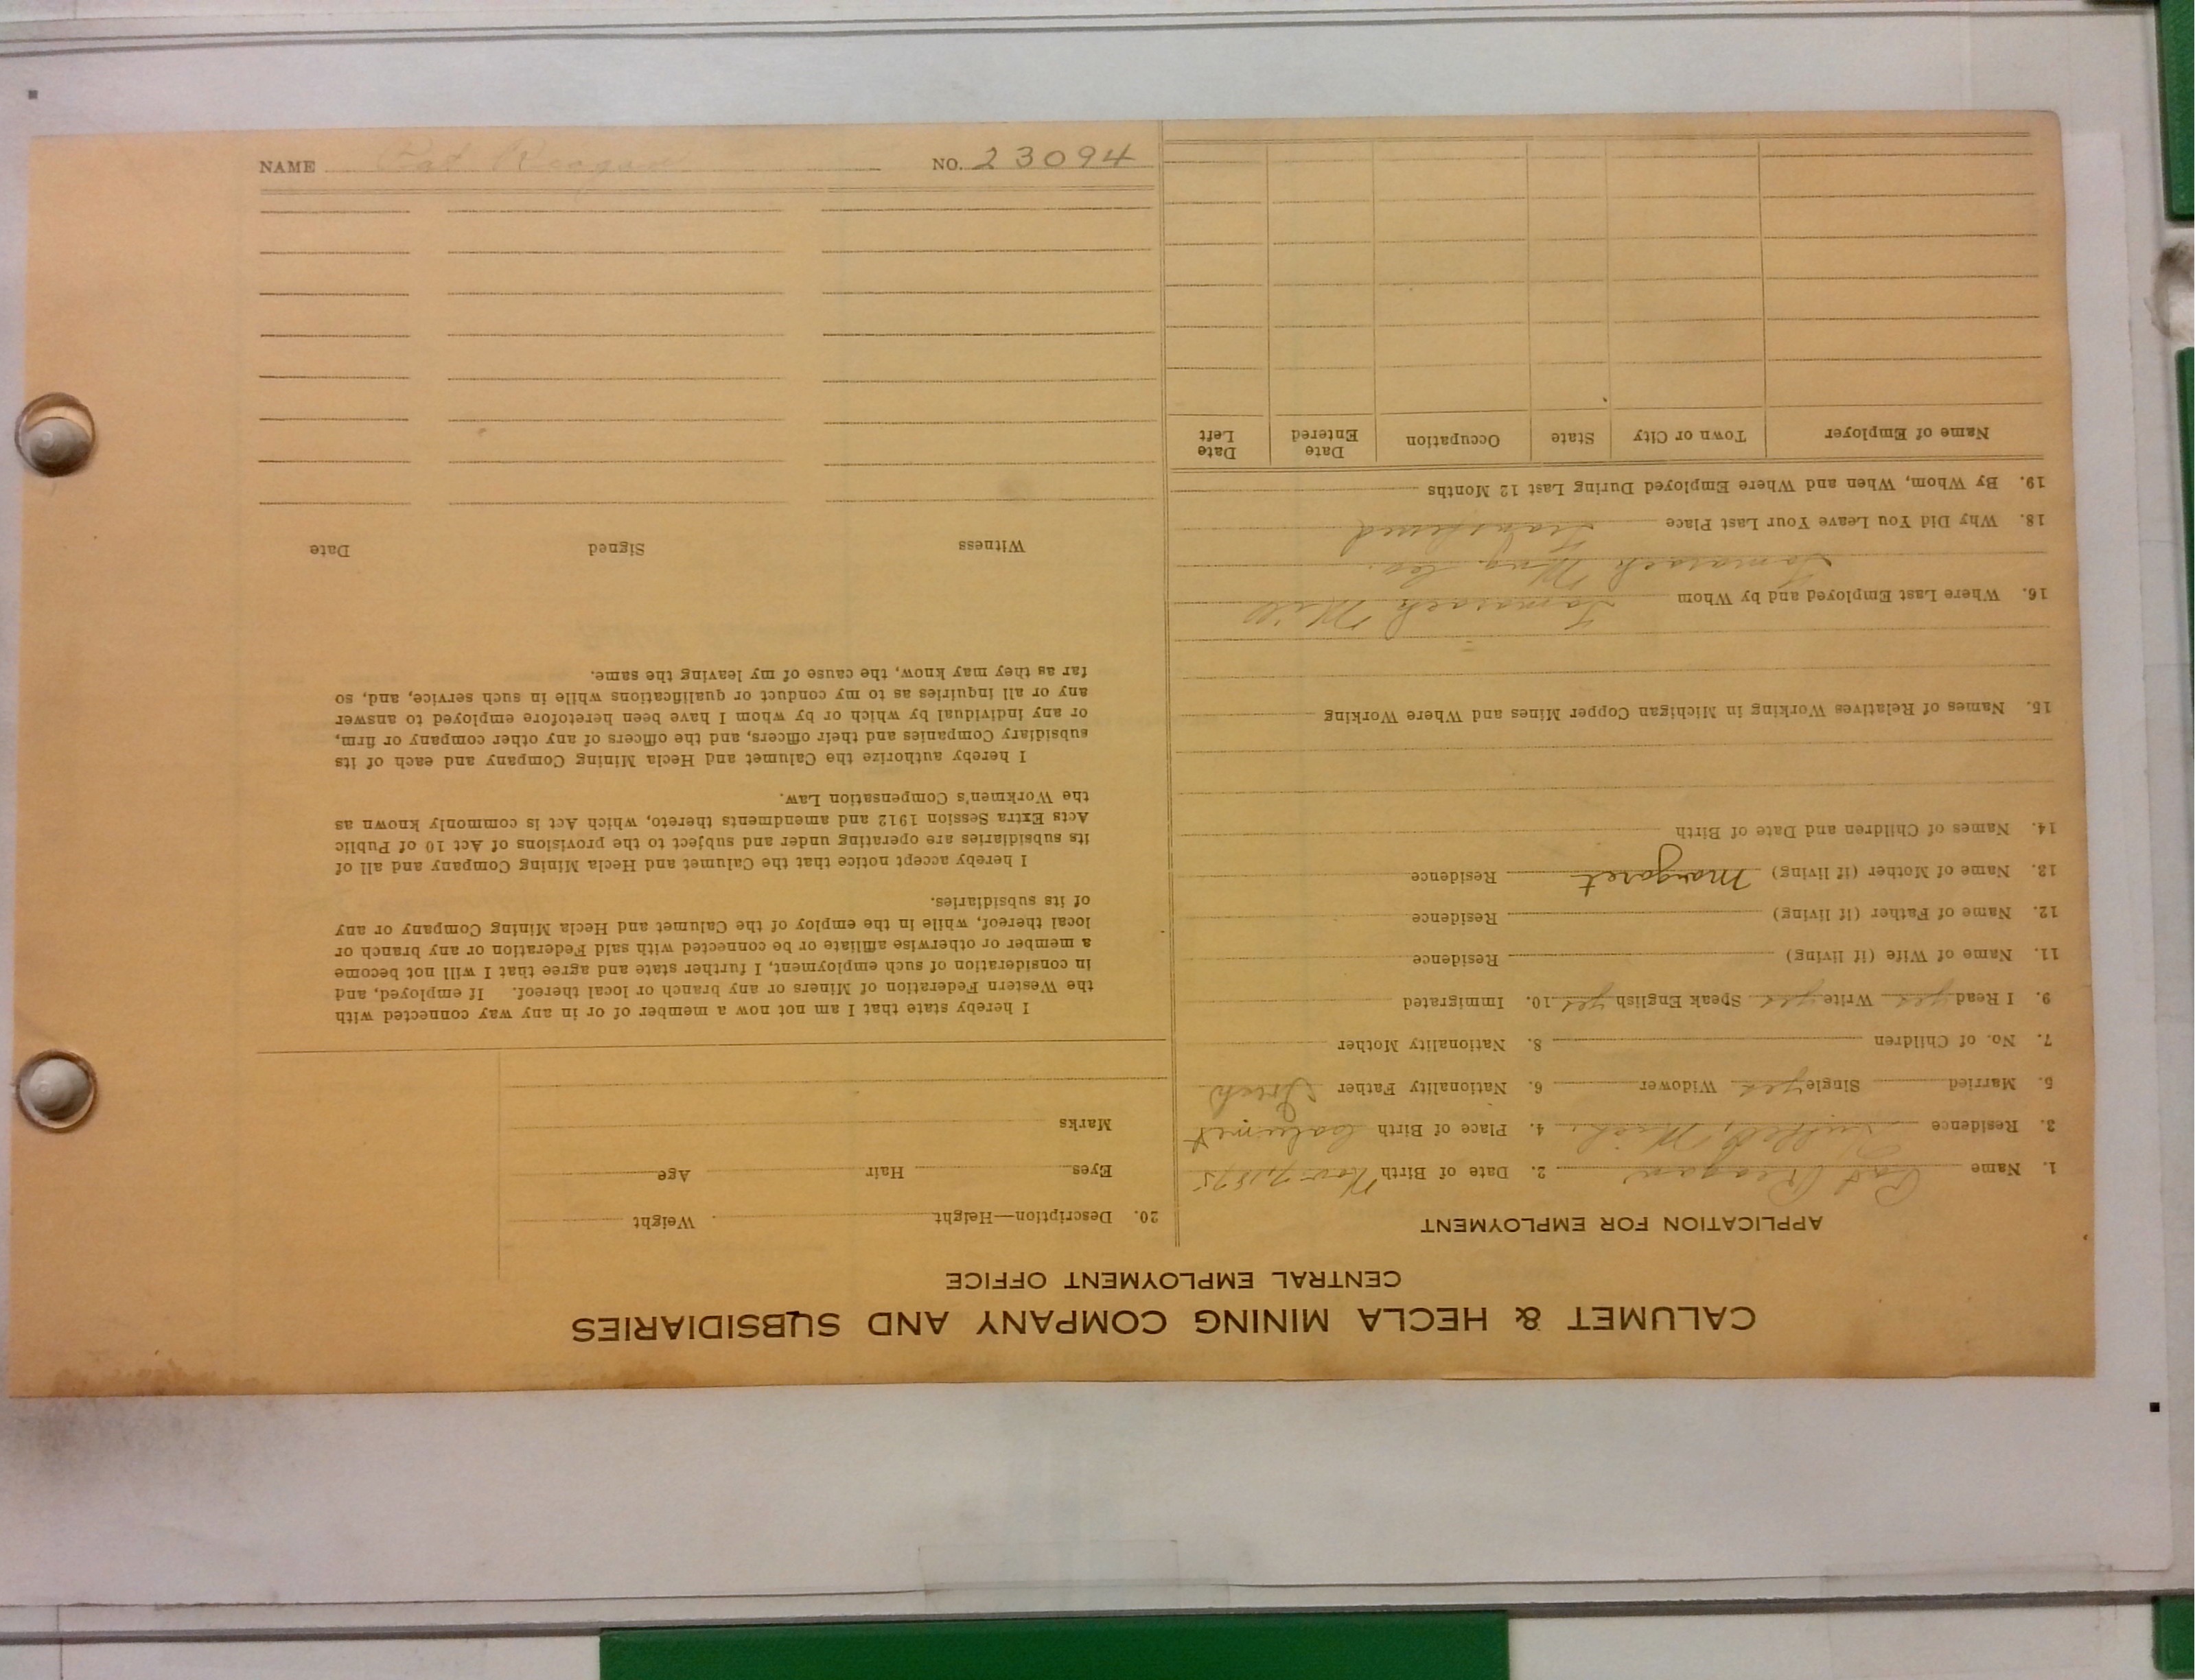 CALUMET & HECLA MINING COMPANY AND SUBSIDIARIES
CENTRAL EMPLOYMENT OFFICE
APPLICATION FOR EMPLOYMENT
1. Name Pat Reagan 2. Date of Birth Nov 7, 1875
3. Residence Hubbell, Mich. 4. Place of Birth Calumet
5. Married Single yes Widower 6. Nationality Father Irish
7. No. of Children 8. Nationality Mother
9. I Read yes Write yes Speak English yes 10. Immigrated
11. Name of Wife (if living) Residence
12. Name of Father (if living) Residence
13. Name of Mother (if living) Margaret Residence
14. Names of Children and Date of Birth
15. Names of Relatives Working in Michigan Copper Mines and Where Working
16. Where Last Employed and by Whom Tamarack Mill
Tamarack Mng. Co.
18. Why Did You Leave Your Last Place Transferred
19. By Whom, When and Where Employed During Last 12 Months
Name of Employer Town or City State Occupation Date Entered Date Left
20. Description—Height Weight
Eyes Hair Age
Marks
I hereby state that I am not now a member of or in any way connected with
the Western Federation of Miners or any branch or local thereof. If employed, and
in consideration of such employment, I further state and agree that I will not become
a member or otherwise affiliate or be connected with said Federation or any branch or
local thereof, while in the employ of the Calumet and Hecla Mining Company or any
of its subsidiaries.
I hereby accept notice that the Calumet and Hecla Mining Company and all of
its subsidiaries are operating under and subject to the provisions of Act 10 of Public
Acts Extra Session 1912 and amendments thereto, which Act is commonly known as
the Workmen's Compensation Law.
I hereby authorize the Calumet and Hecla Mining Company and each of its
subsidiary Companies and their officers, and the officers of any other company or firm,
or any individual by which or by whom I have been heretofore employed to answer
any or all inquiries as to my conduct or qualifications while in such service, and, so
far as they may know, the cause of my leaving the same.
Witness Signed Date
NAME Pat Reagan NO. 23094